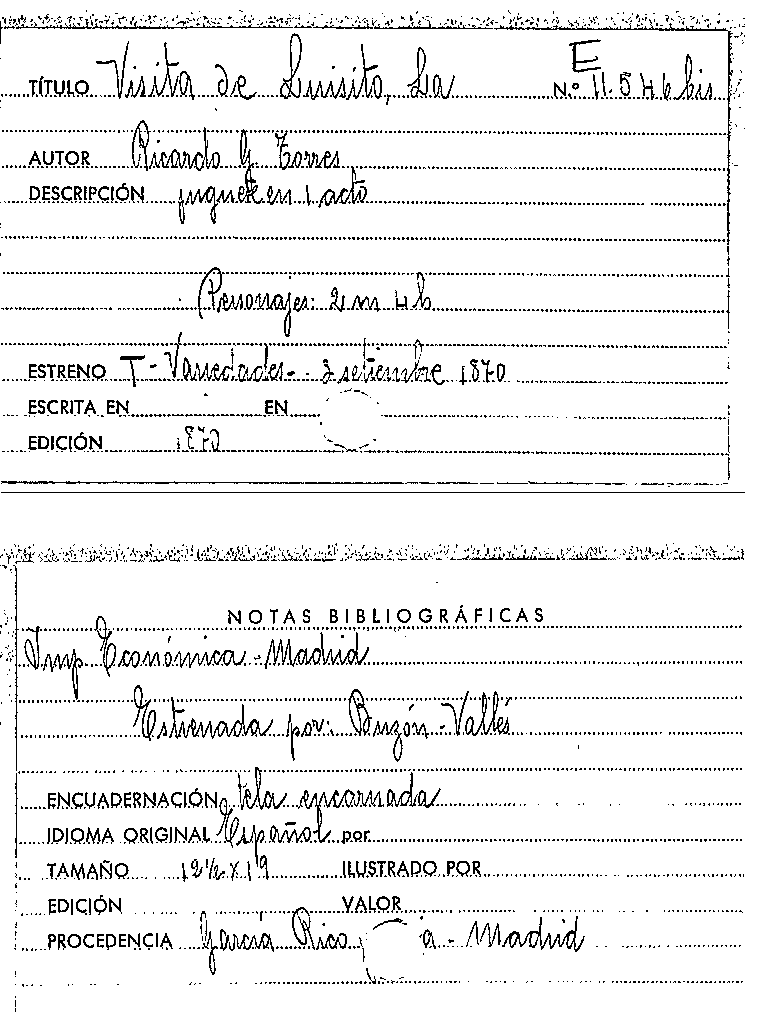 E
TÍTULO Visita de Luisito, La N.º 11.546 bis
AUTOR Ricardo G. Torres
DESCRIPCIÓN juguete en 1 acto
Personajes: 2 m 4 h
ESTRENO T - Variedades - 2 setiembre 1870
ESCRITA EN EN
EDICIÓN 1870
NOTAS BIBLIOGRÁFICAS
Imp. Económica - Madrid
Estrenada por: Buzón - Vallés
ENCUADERNACIÓN tela encarnada
IDIOMA ORIGINAL Español por
TAMAÑO 12 1/2 x 19 ILUSTRADO POR
EDICIÓN VALOR
PROCEDENCIA García Rico - Madrid